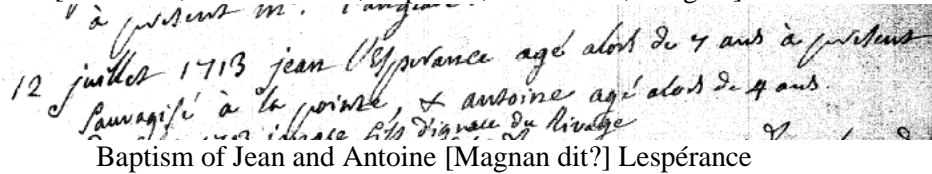 à présent m.
12 juillet 1713 jean l'Esperance agé alors de 7 ans à present
Sauvagisé à la pointe, & antoine agé alors de 4 ans.
1713 fils d'ignace du Rivage
Baptism of Jean and Antoine [Magnan dit?] Lespérance